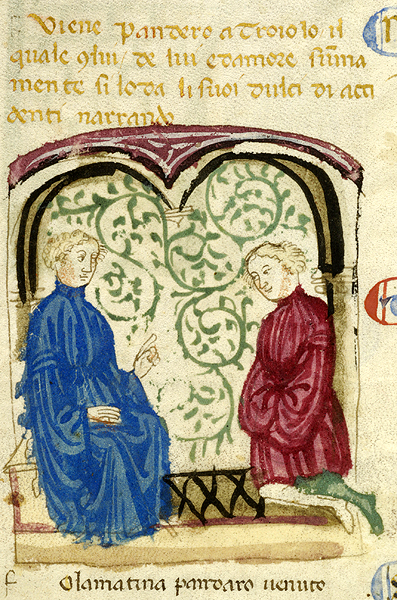 Viene Pandero a Troiolo il
quale 9lui de lui ed amore suma
mente si loda li suoi dulci di acci
denti narrando
Olamatina pandaro uenuto